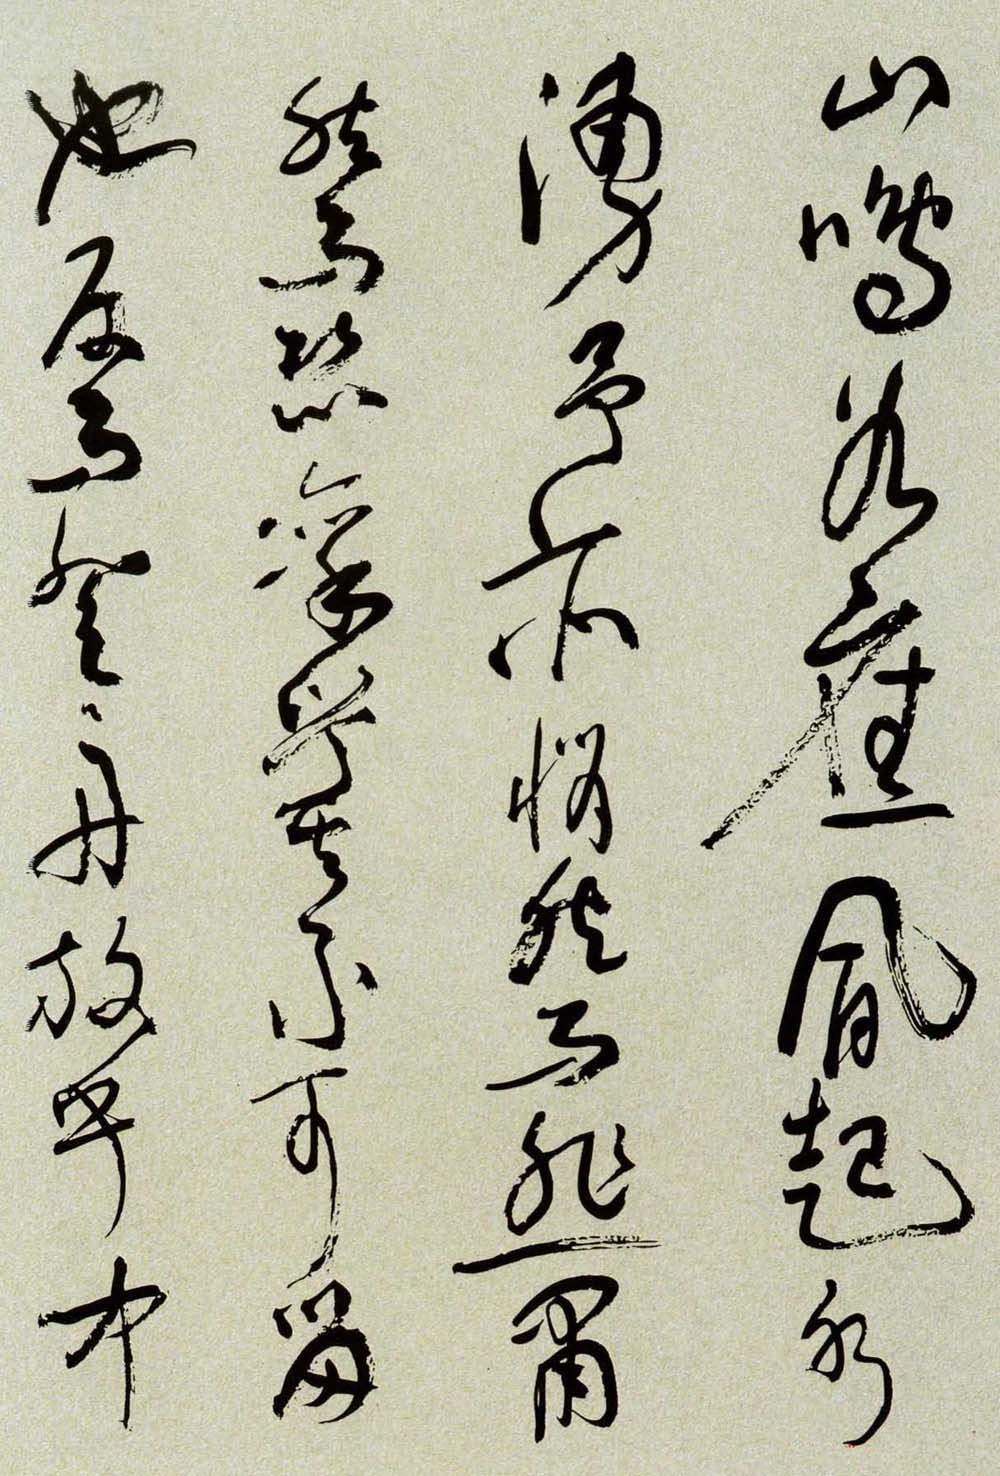 山鳴谷應風起水
湧予亦悄然而悲肅
然而恐凜乎其不可留
也反而登舟放乎中